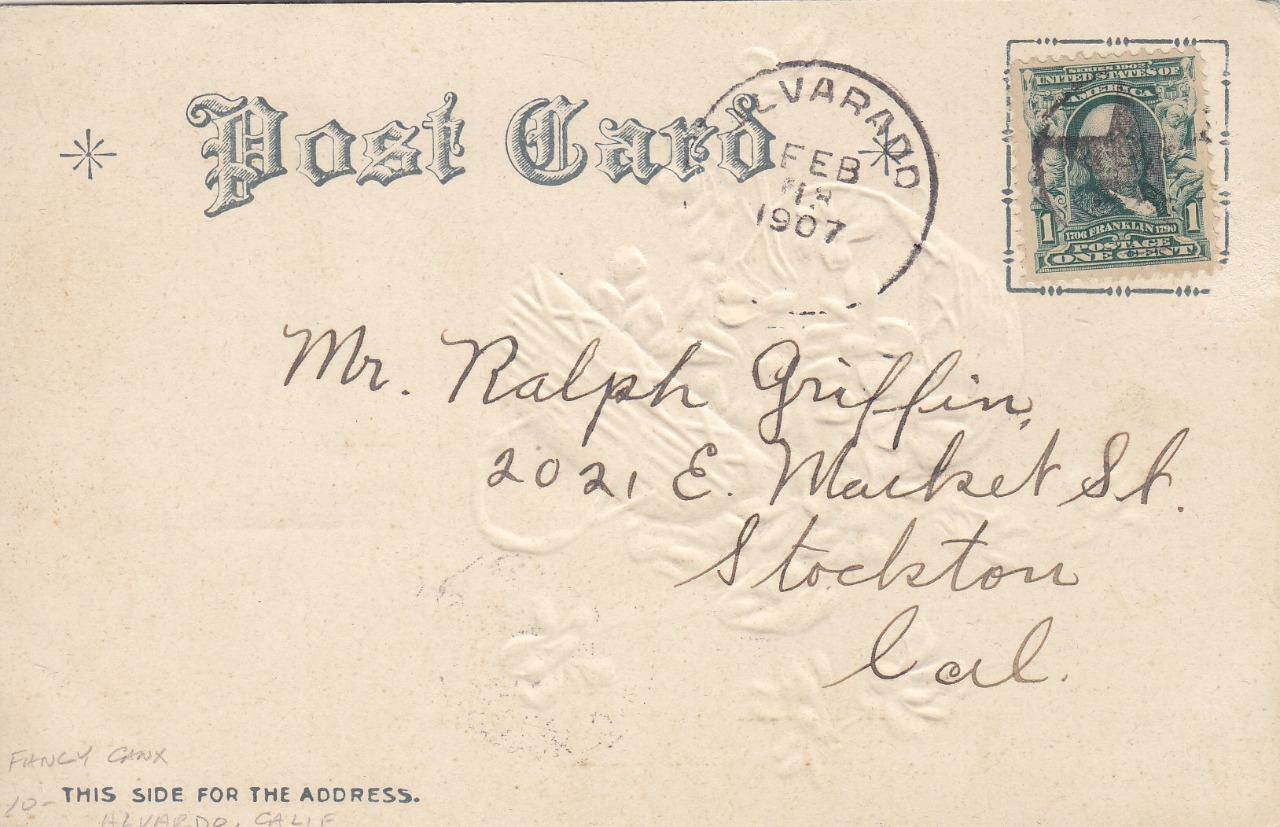 Post Card
ALVARADO
FEB
18
1907
SERIES 1902
UNITED STATES OF
AMERICA
1 1
1706 FRANKLIN 1790
POSTAGE
ONE CENT
Mr. Ralph Griffin,
2021 E. Market St.
Stockton
Cal.
FANCY CANX
10- THIS SIDE FOR THE ADDRESS.
ALVARDO, CALIF